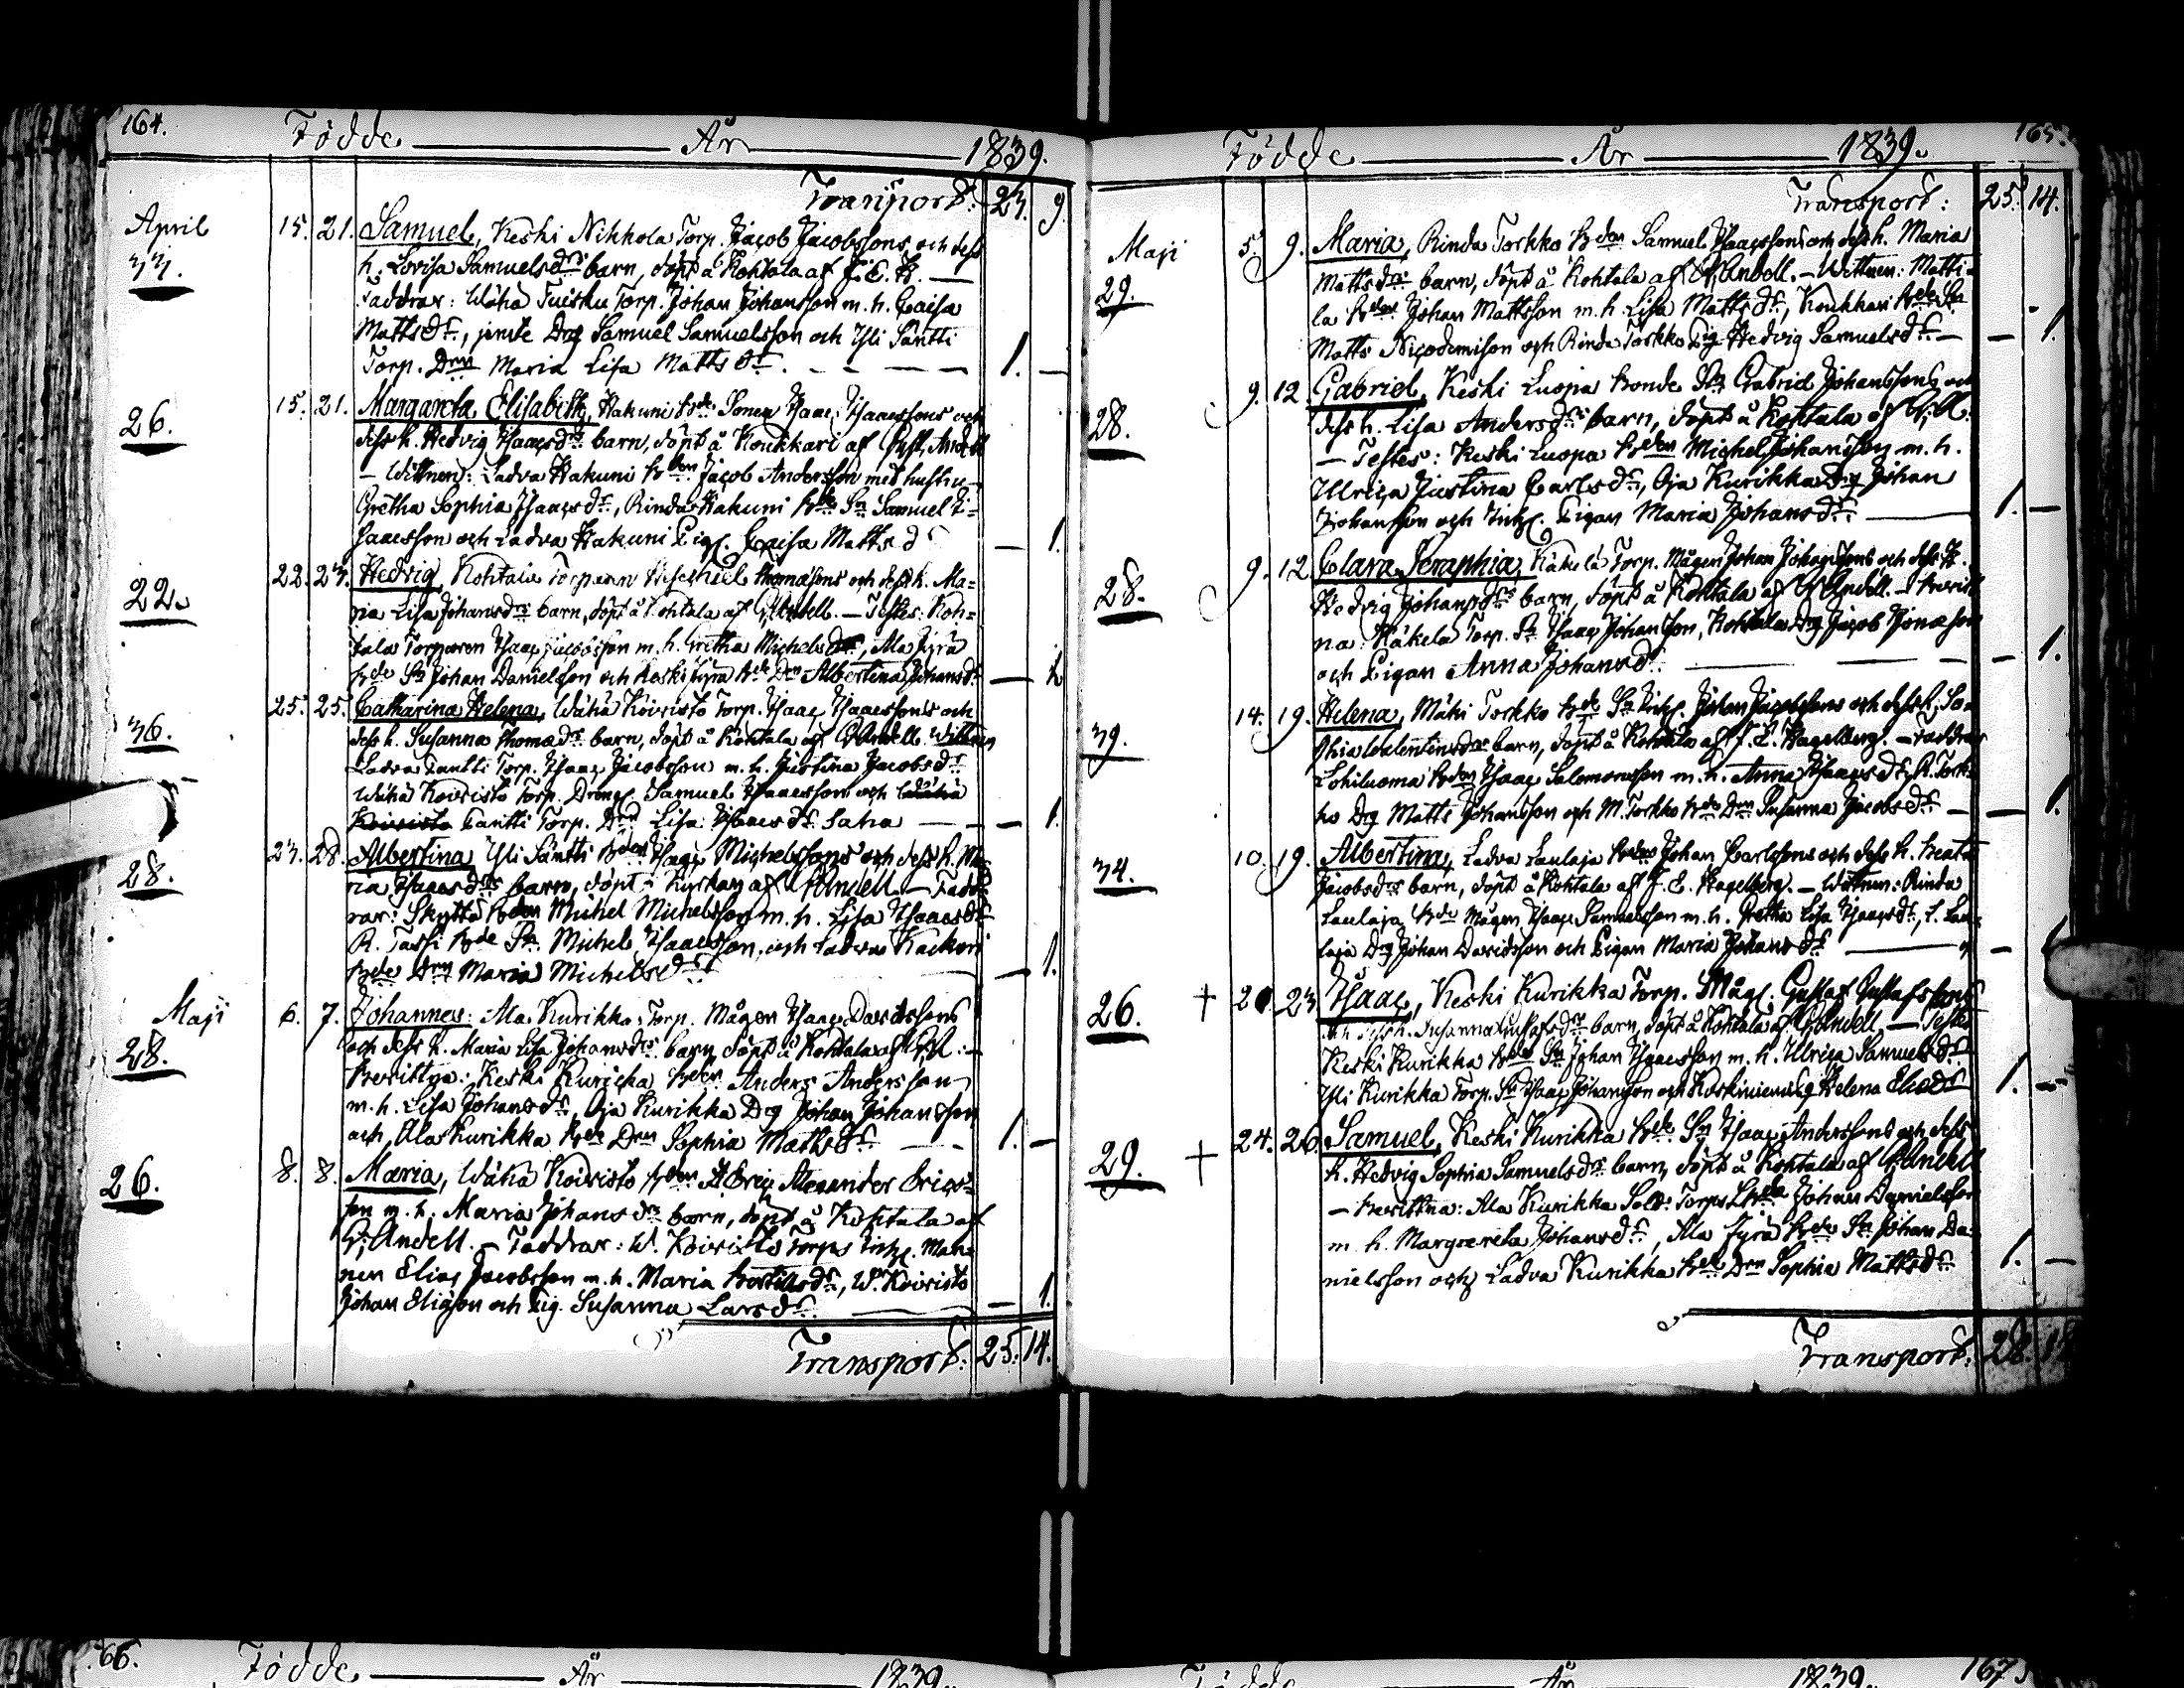 164.
Födde År 1839.
Transport: 23. 9.
April 15. 21. Samuel, Keski Nikkola Torp. Jacob Jacobssons och dess
33. h. Lovisa Samuelsdrs barn, döpt å Kohtala af J. E. H. —
Faddrar: Wäha Tuisku Torp. Johan Johansson m. h. Caisa
Mattsdr, jemte Drg Samuel Samuelsson och Yli Säntti
Torp. Drn Maria Lisa Mattsdr. — 1. —
15. 21. Margareta Elisabeth, Hakuni Bde Sonen Isaac Isaacssons och
26. dess h. Hedvig Isaacsdrs barn, döpt å Koukkari af Gust. Andell
— Wittnen: Ladva Hakuni Bden Jacob Andersson med hustru
Gretha Sophia Isaacsdr, Rinda Hakuni Bde Sn Samuel I-
saacsson och Ladva Hakuni Pig. Caisa Mattsdr — 1.
22. 23. Hedvig, Kohtala Torparn Hiseckiel Thomæsons och dess h. Ma-
22. ria Lisa Johansdrs barn, döpt å Kohtala af G. Andell. — Testes: Koh-
tala Torparen Isaac Jacobsson m. h. Gretha Michelsdr, Ala Jyrä
Bde Sn Johan Danielsson och Keski Jyrä Bde Drn Albertina Johansdr — 1.
25. 25. Catharina Helena, Wäha Koivisto Torp. Isaac Isaacssons och
36. dess h. Susanna Thomædrs barn, döpt å Kohtala af G. Andell. Wittnen
Ladva Santti Torp. Isaac Jacobsson m. h. Justina Jacobsdr
Wäha Koivisto Torp. Dreng. Samuel Isaacsson och Wäha
Koivisto Santti Torp. Drn Lisa Isaacsdr Saha — 1.
23. 28. Albertina, Yli Säntti Bden Isaac Michelssons och dess h. Ma-
28. ria Isaacsdrs barn, döpt i Kyrkan af G. Andell — Fadd-
rar: Skyttä Bden Michel Michelsson m. h. Lisa Isaacsdr
R. Tassi Bde Sn Michel Isaacsson, och Ladva Kackori
Bde Drn Maria Michelsdr — 1.
Maji 6. 7. Johannes: Ala Kurikka Torp. Mågen Isaac Davidssons
28. och dess h. Maria Lisa Johansdrs barn döpt å Kohtala af G. A: —
Bevittna: Keski Kurikka Bden Anders Andersson
m. h. Lisa Johansdr, Oja Kurikka Drg Johan Johansson
och Ala Kurikka Bde Drn Sophia Mattsdr 1. —
8. 8. Maria, Wäha Koivisto Bden Eric Alexander Erics-
26. son m. h. Maria Johansdrs barn, döpt å Kohtala af
G. Andell. — Faddrar: W. Koivisto Torps Inh. Man-
nen Elias Jacobsson m. h. Maria Bertilsdr, W. Koivisto
Johan Eliasson och Pig. Susanna Larsdr. — 1.
Transport: 25. 14.
165.
Födde År 1839.
Transport: 25. 14.
Maji 5. 9. Maria, Rinda Torkko Bden Samuel Isaacssons och dess h. Maria
29. Mattsdrs barn, döpt å Kohtala af G. Andell. — Wittnen: Matti-
la Bden Johan Mattsson m. h. Lisa Mattsdr, Koukkari Bde Sn
Matts Nicodemison och Rinda Torkko Pig. Hedvig Samuelsdr — 1.
9. 12. Gabriel, Keski Luopa Bonde Sn Gabriel Johanssons och
28. dess h. Lisa Andersdrs barn, döpt å Kohtala af G. A.
— Testes: Keski Luopa Bden Michel Johansson m. h.
Ulrica Justina Carlsdr, Oja Kurikka Drg Johan
Johansson och Inh. Pigan Maria Johansdr. 1. —
9. 12. Clara Seraphia, Käkelä Torp. Mågen Johan Johanssons och dess h.
28. Hedvig Johansdrs barn, döpt å Kohtala af G. Andell. — Bevitt-
na: Käkelä Torp. Sn Isaac Johansson, Kohtala Drg Jacob Jonæson
och Pigan Anna Johansdr. — 1.
14. 19. Helena, Mäki Torkko Bde Sn Inh. Johan Jacobssons och dess h. So-
39. phia Walentinsdrs barn, döpt å Kohtala af J. E. Hagelberg. — Faddrar
Lohiluoma Bden Isaac Salomonsson m. h. Anna Isaacsdr, R. Tork-
ko Drg Matts Johansson och M. Torkko Bde Drn Susanna Jacobsdr — 1.
10. 19. Albertina, Ladva Laulaja Bden Johan Carlssons och dess h. Beata
34. Jacobsdrs barn, döpt å Kohtala af J. E. Hagelberg. — Wittnen: Rinda
Laulaja Bde Mågen Isaac Samuelsson m. h. Gretha Lisa Isaacsdr, L. Lau-
laja Drg Johan Davidsson och Pigan Maria Johansdr —
+ 20. 23. Isaac, Keski Kurikka Torp. Måg. Gustaf Gustafssons
26. och dess h. Susanna Gustafsdrs barn, döpt å Kohtala af G. Andell. — Testes
Keski Kurikka Bde Sn Johan Isaacsson m. h. Ulrica Samuelsdr
Yli Kurikka Torp. Sn Isaac Johansson och Koskiniemi Pig Helena Eliædr 1. —
+ 24. 26. Samuel, Keski Kurikka Bde Sn Isaac Anderssons och dess
29. h. Hedvig Sophia Samuelsdrs barn, döpt å Kohtala af G. Andell
— Bevittna: Ala Kurikka Sold: Torps Bden Johan Danielsson
m. h. Margareta Johansdr, Ala Jyrä Bde Sn Johan Da-
nielsson och Ladva Kurikka Bde Drn Sophia Mattsdr 1. —
Transport: 28.
66.
Födde År 1839.
Födde År 1839.
167